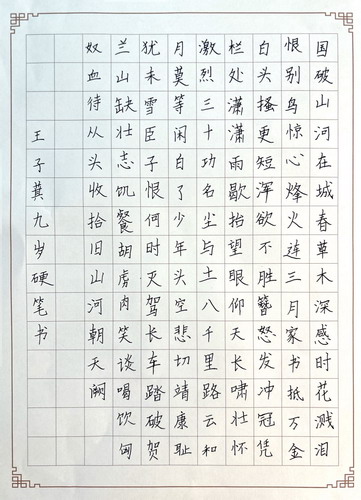 国破山河在城春草木深感时花溅泪
恨别鸟惊心烽火连三月家书抵万金
白头搔更短浑欲不胜簪怒发冲冠凭
栏处潇潇雨歇抬望眼仰天长啸壮怀
激烈三十功名尘与土八千里路云和
月莫等闲白了少年头空悲切靖康耻
犹未雪臣子恨何时灭驾长车踏破贺
兰山缺壮志饥餐胡虏肉笑谈喝饮匈
奴血待从头收拾旧山河朝天阙
王子萁九岁硬笔书